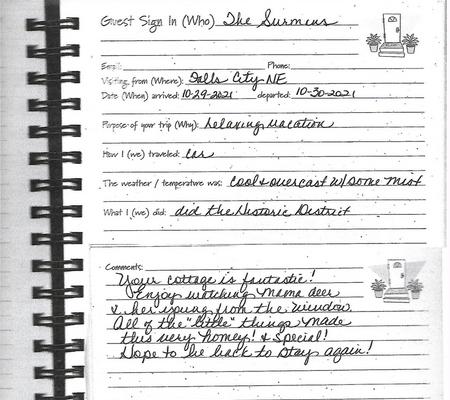 Guest Sign In (Who) The Surmans
Email: Phone:
Visiting from (Where): Falls City NE
Date (When) arrived: 10-29-2021 departed: 10-30-2021
Purpose of your trip (Why): Relaxing vacation
How I (we) traveled: Car
The weather / temperature was: Cool & overcast w/ some mist
What I (we) did: did the Historic District
Comments:
Your cottage is fantastic!
Enjoy watching Mama deer
& her young from the window.
All of the "little" things made
this very homey! & Special!
Hope to be back to stay again!